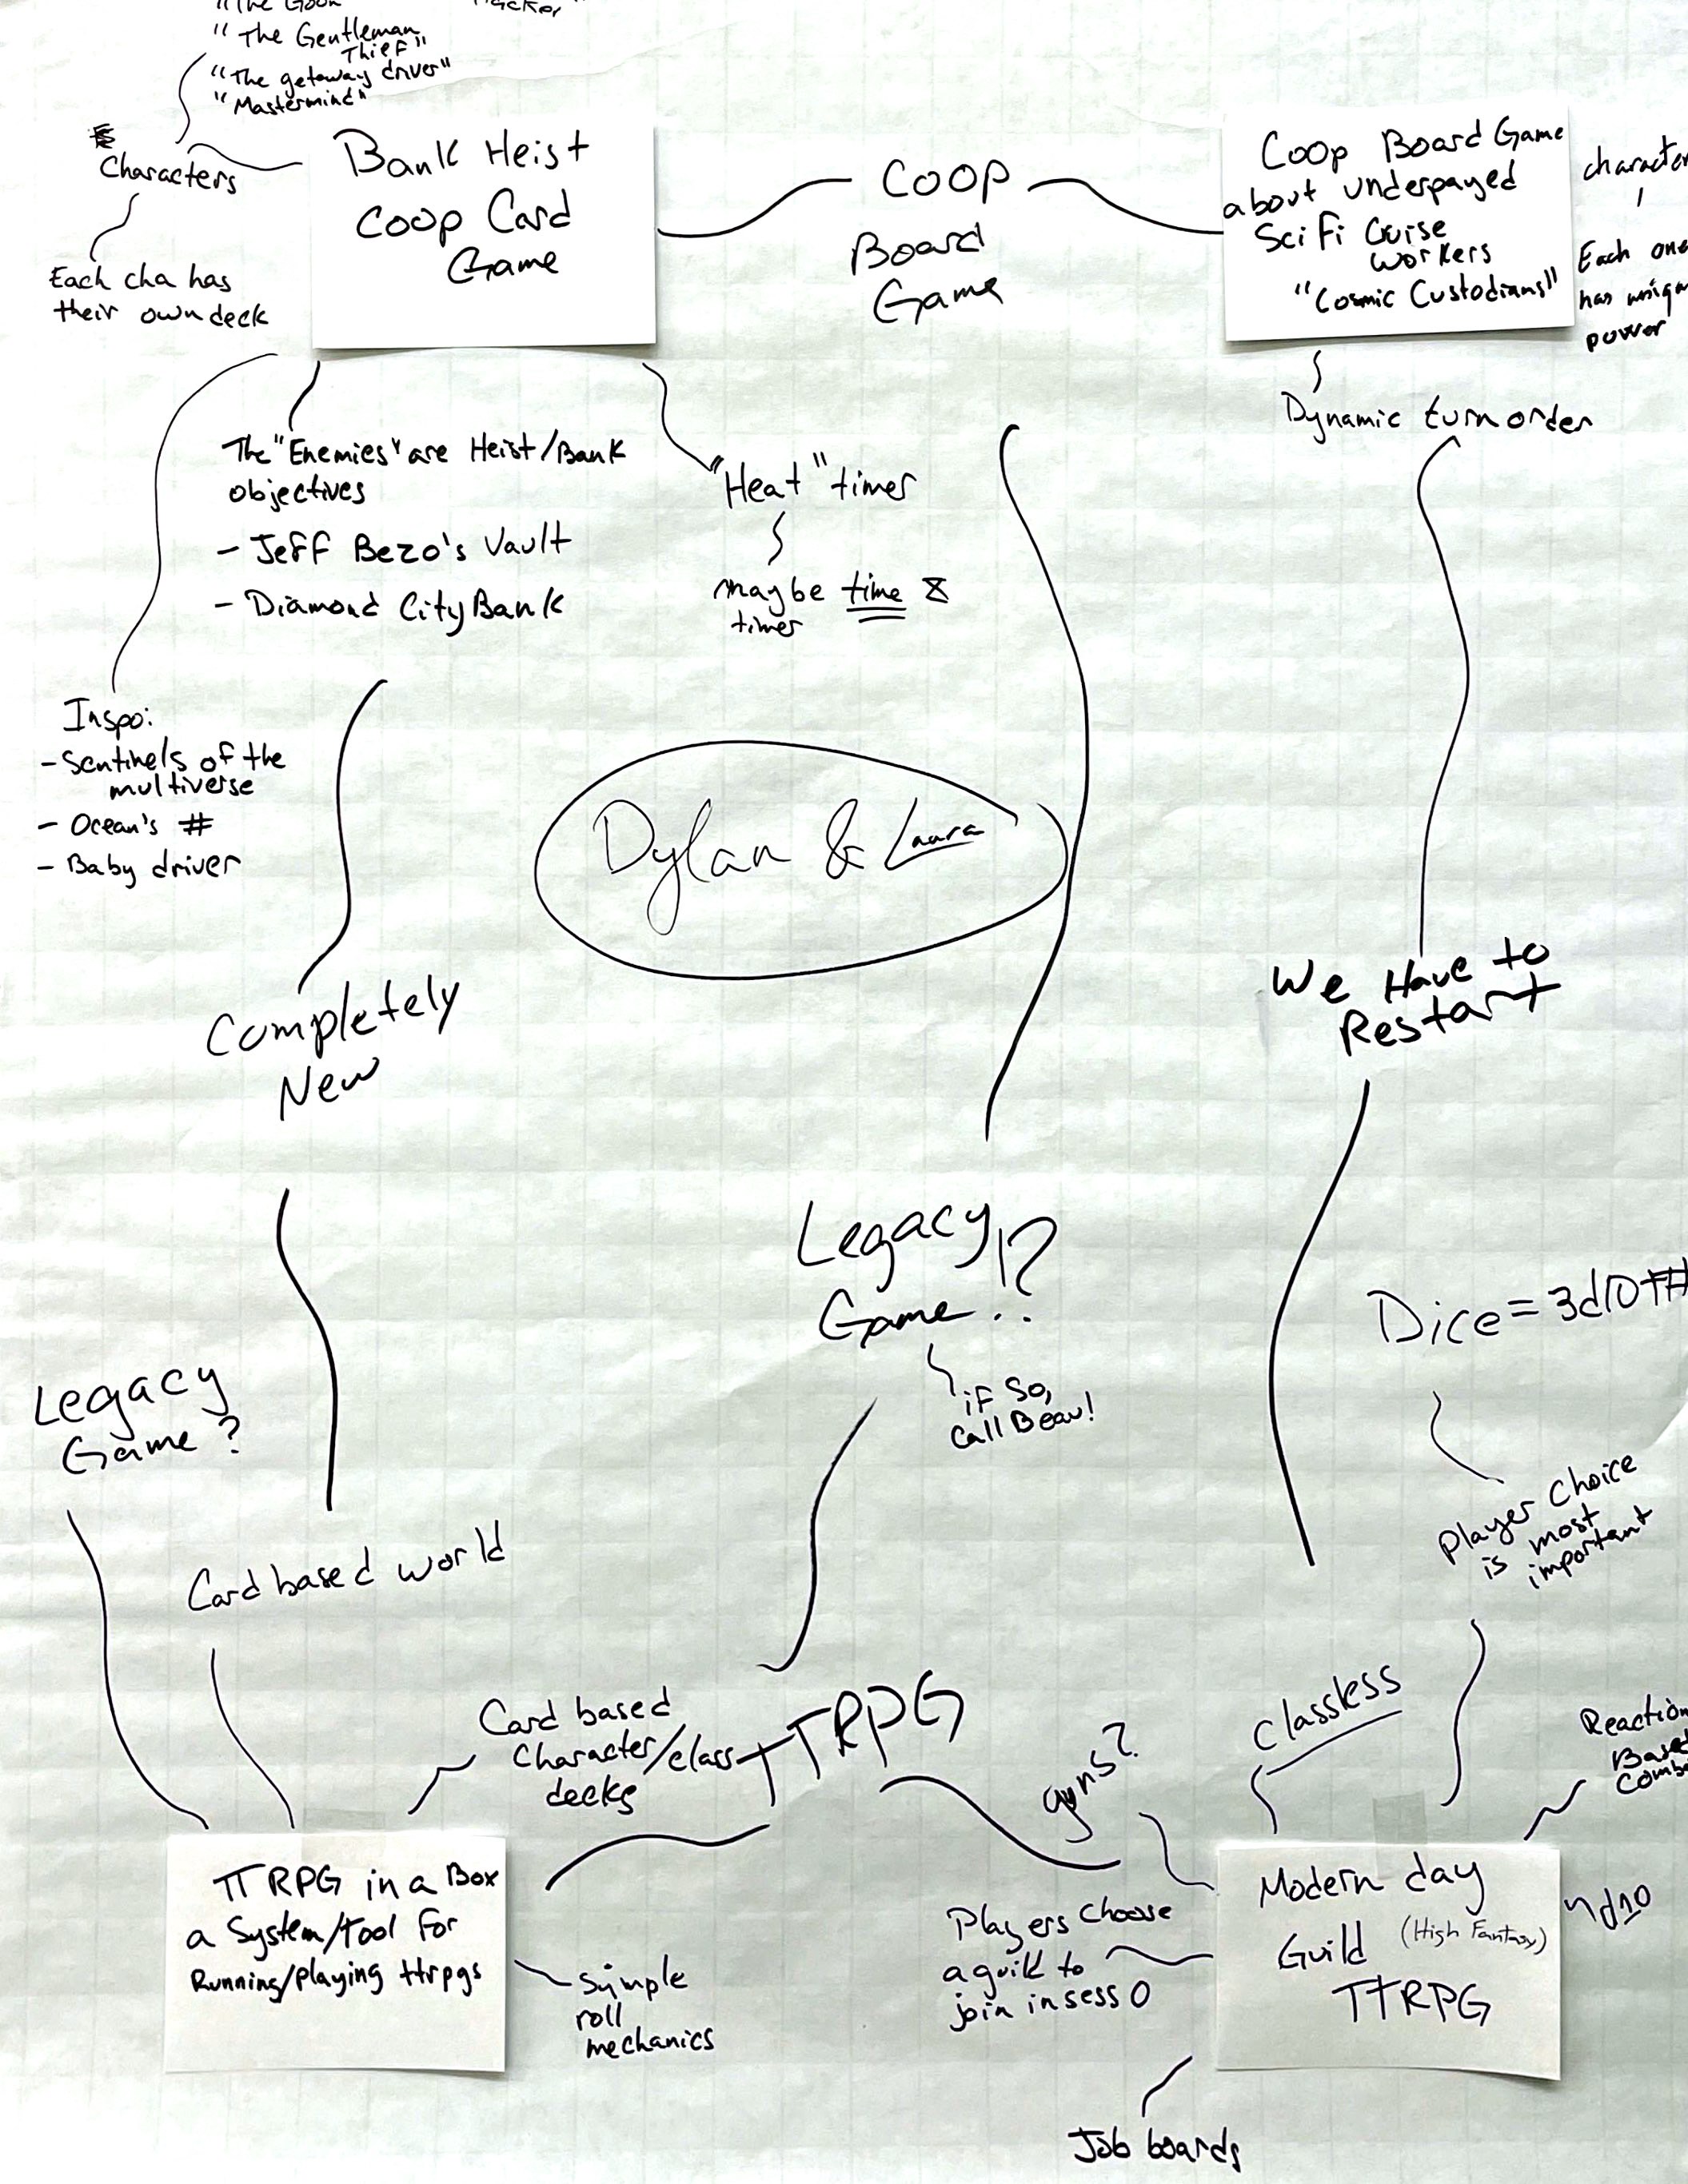 "The Goon"
Hacker"
"The Gentleman
Thief"
"The getaway driver"
"Mastermind"
Characters
Each cha has
their own deck
Bank Heist
Coop Card
Game
COOP
Board
Game
Coop Board Game
about underpayed
SciFi Cruise
workers
"Cosmic Custodians"
character
Each one
has uniqu
power
Dynamic turn order
The "Enemies" are Heist/Bank
objectives
- Jeff Bezo's Vault
- Diamond City Bank
"Heat" timer
maybe time &
timer
Inspo:
- Sentinels of the
multiverse
- Ocean's #
- Baby driver
Dylan & Laura
Completely
New
We Have to
Restart
Legacy
Game !?
if so,
Call Beau!
Dice = 3d10+#
Player Choice
is most
important
Legacy
Game?
Card based world
Card based
Character/class
decks
TTRPG
guns?
Classless
Reaction
Based
Comba
TTRPG in a Box
a System/tool for
Running/Playing ttrpgs
simple
roll
mechanics
Players choose
a guild to
join in sess 0
Modern day
Guild (High Fantasy)
TTRPG
nd10
Job boards